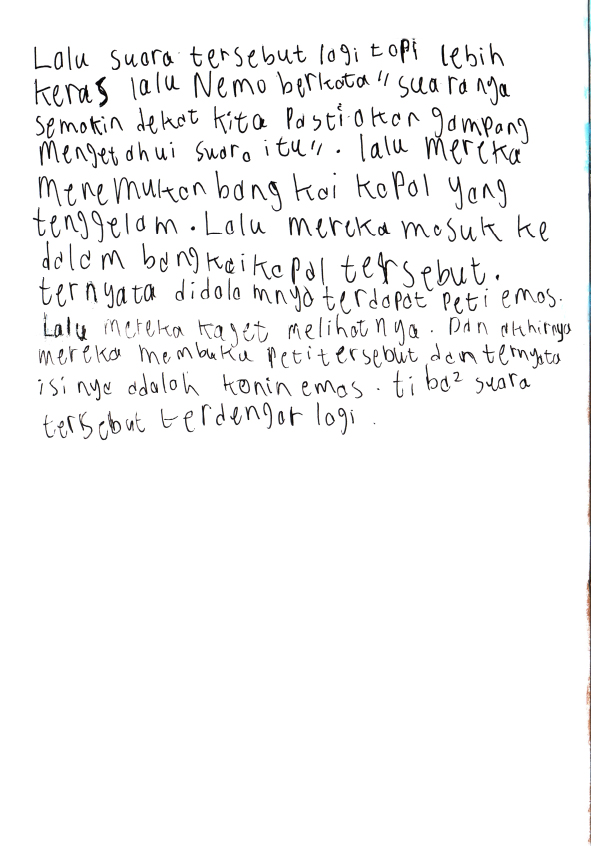 Lalu suara tersebut lagi tapi lebih
keras lalu Nemo berkata "suaranya
semakin dekat kita pasti akan gampang
mengetahui suara itu". lalu mereka
menemukan bangkai kapal yang
tenggelam. Lalu mereka masuk ke
dalam bangkai kapal tersebut.
ternyata didalamnya terdapat peti emas.
Lalu mereka kaget melihatnya. Dan akhirnya
mereka membuka peti tersebut dan ternyata
isi nya adalah konin emas. tiba² suara
tersebut terdengar lagi.